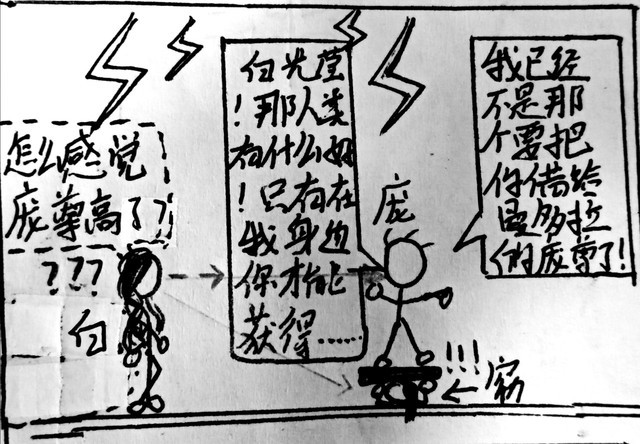 怎么感觉
庞尊高了?
???
白
白光莹
!那人类
有什么好
!只有在
我身边
你才能
获得……
庞
我已经
不是那
个要把
你借给
曼多拉
的庞尊了!
!!!